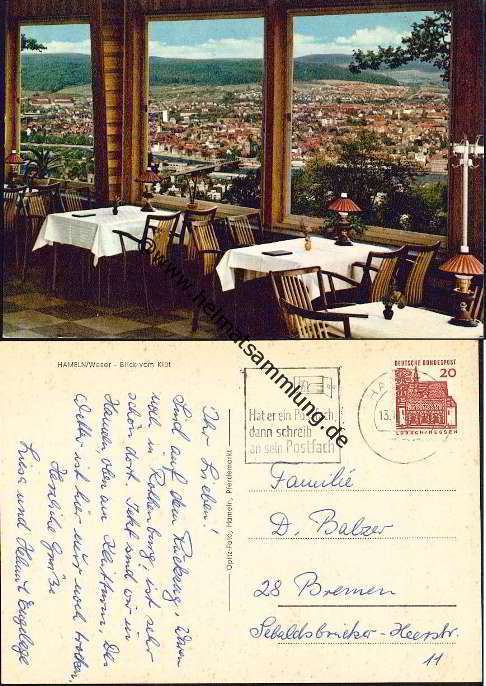 www.heimatsammlung.de
HAMELN/Weser - Blick vom Klüt
Ihr Lieben!
Sind auf dem Rückzug. Waren
noch in Rothenburg, ist sehr
schön dort. Jetzt sind wir in
Hameln, oben am Klütturm. Das
Wetter ist hier nur noch trocken.
Herzliche Grüße
Luise und Helmut
Opitz-Foto, Hameln, Pferdemarkt
Hat er ein Postfach,
dann schreib
an sein Postfach
13.
DEUTSCHE BUNDESPOST
20
LORSCH/HESSEN
Familie
D. Balzer
28 Bremen
Sebaldsbrücker-Heerstr.
11